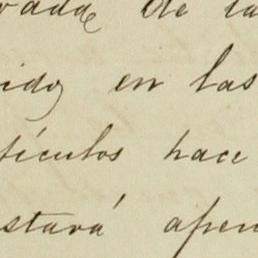 vada de la
ido, en las
tículos hace
stará apen